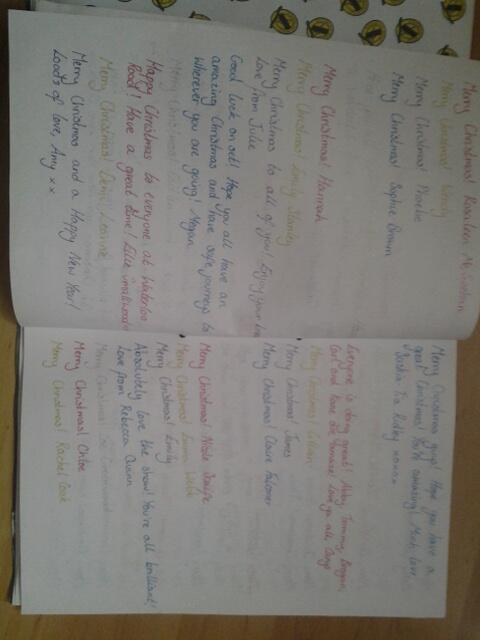 Merry Christmas! Rosaleen
Merry Christmas! Wendy
Merry Christmas! Phoebe
Merry Christmas! Sophie Brown
Merry Christmas! Hannah
Merry Christmas! Emily Stanley
Merry Christmas to all of you! Enjoy your
Love from Julie
Good luck on set! Hope you all have an
amazing Christmas and have safe journeys to
wherever you are going! Megan
Merry Christmas!
Happy Christmas to everyone at Waterloo
Road! Have a great time! Ellie Smallwood
Merry Christmas! Demi Leanne
Merry Christmas and a Happy New Year!
Loads of love, Amy xx
Merry Christmas guys! Hope you have a
great Christmas! You're amazing! Much love
Ridley
Everyone is doing great! Abby, Tommy,
Love you all,
Merry Christmas! Gillian
Merry Christmas! James
Merry Christmas! Claire Falconer
Merry Christmas! Nicole
Merry Christmas! Emma Webb
Merry Christmas! Emily
Absolutely love the show! You're all brilliant!
Love from Rebecca Quinn
Merry Christmas!
Merry Christmas! Chloe
Merry Christmas! Rachel Cook